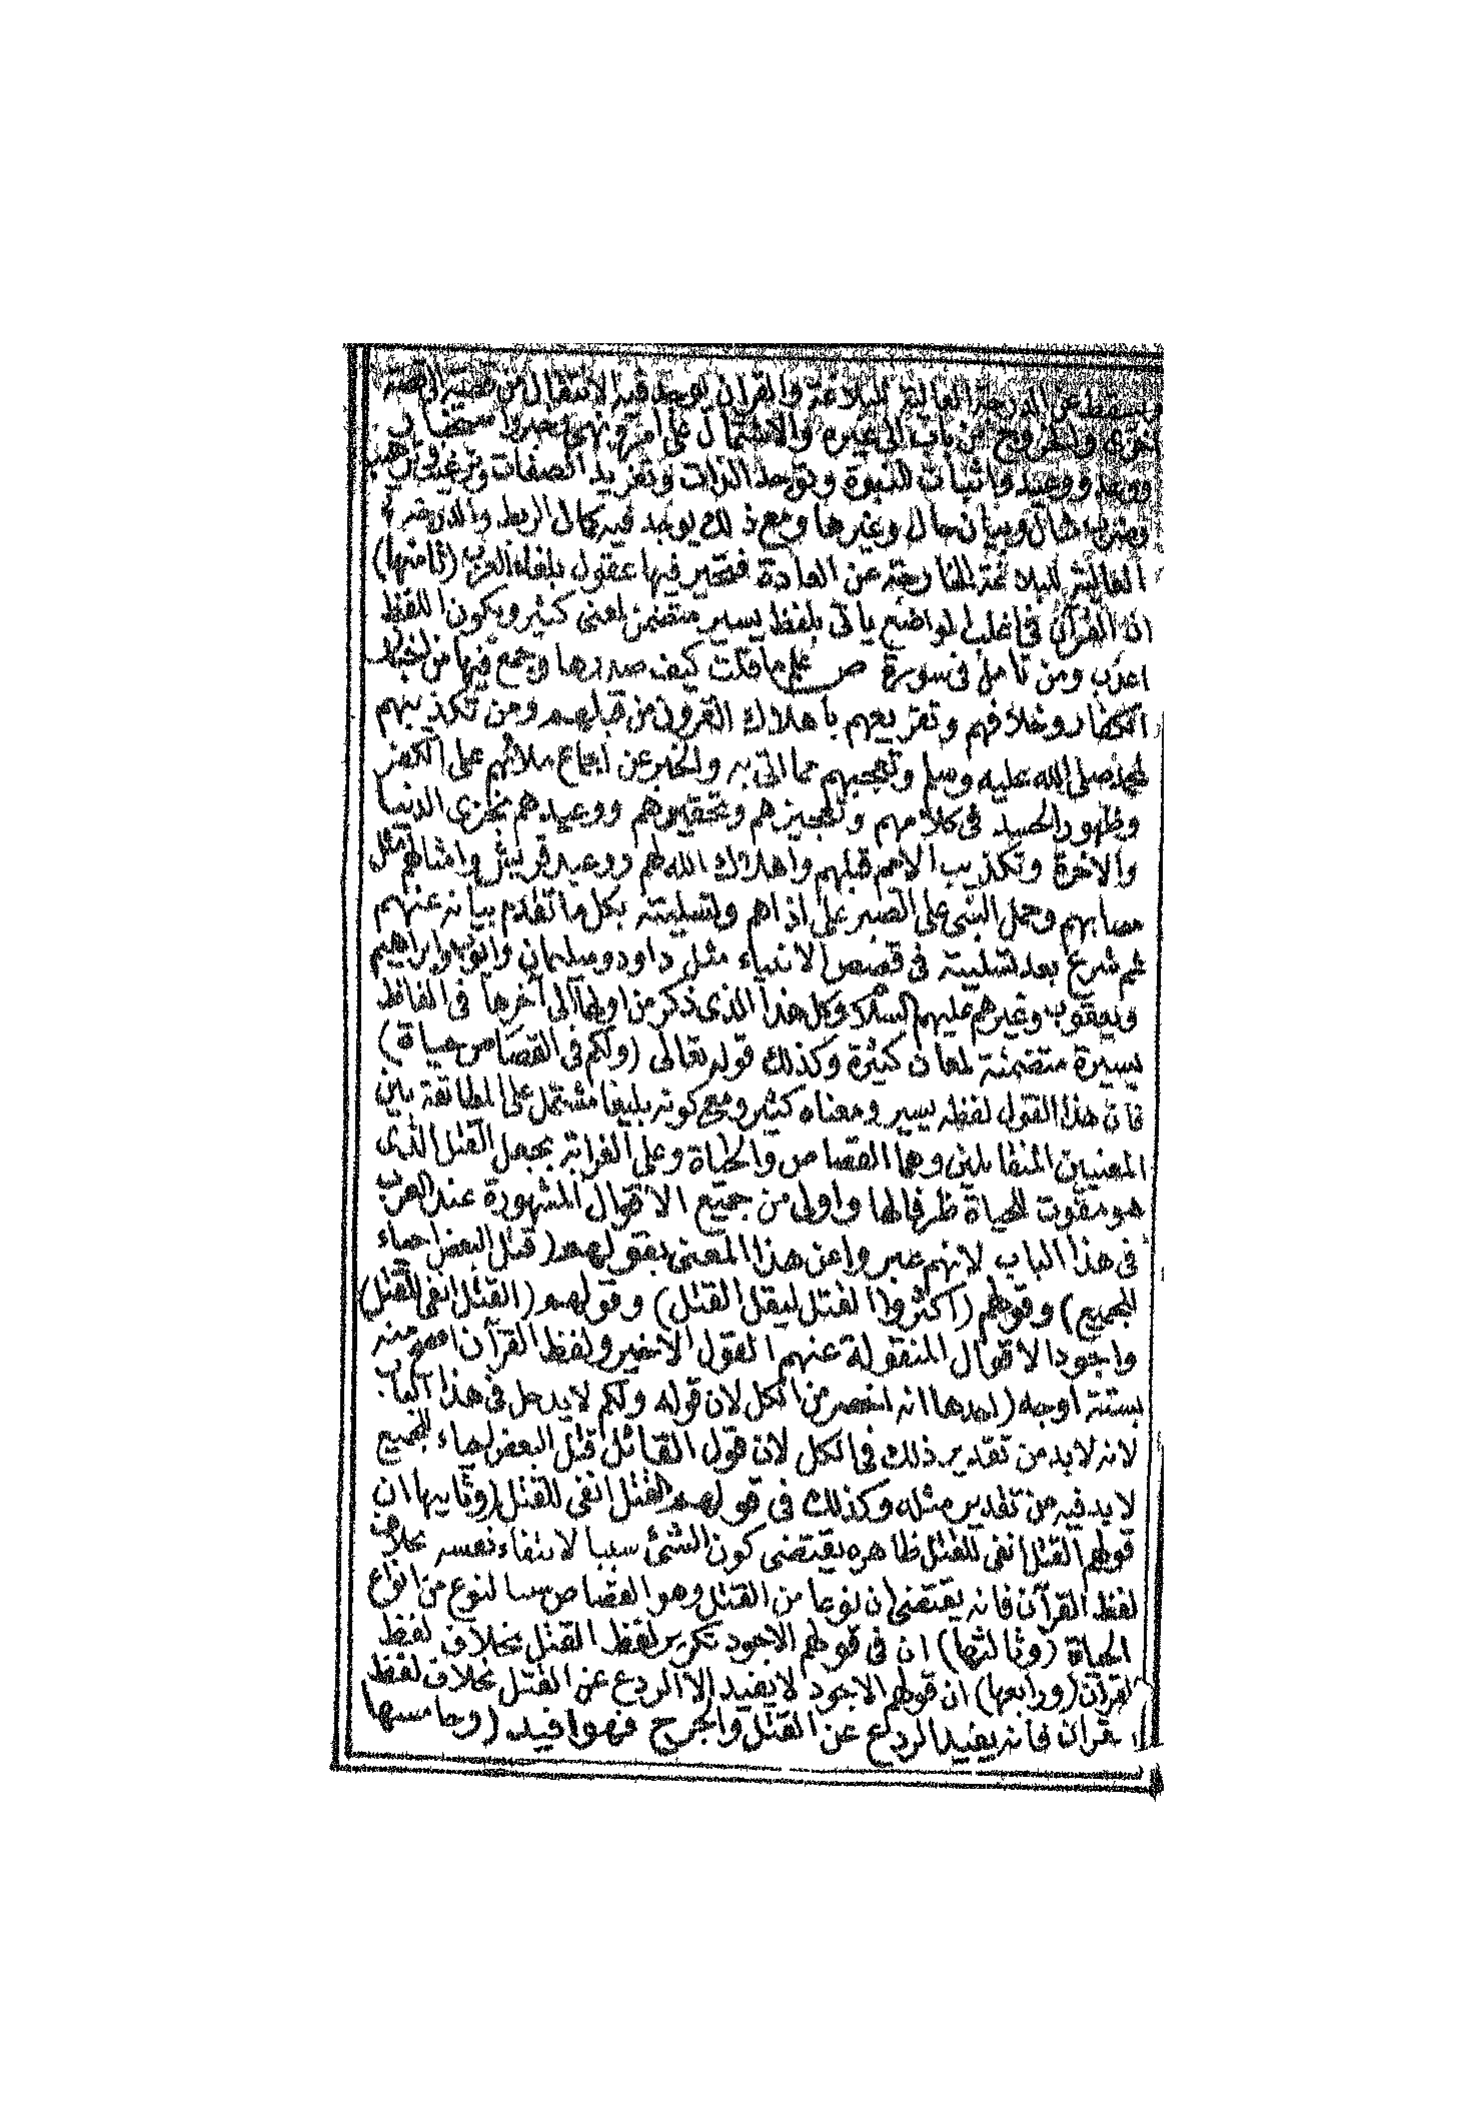 ويسقط عن الدرجة العالية للبلاغة والقرآن يوجد فيه الانتقال من قصة الى قصة
اخرى والخروج من باب الى غيره والاشتمال على امر ونهى وخبر واستخبار
ووعد ووعيد واثبات النبوة وتوحيد الذات وتفريد الصفات وترغيب وترهيب
وضرب مثال وبيان حال وغيرها ومع ذلك يوجد فيه كمال الربط والدرجة
العالية للبلاغة الخارجة عن العادة فتحير فيها عقول بلغاء العرب (ثامنها)
ان القرآن فى اغلب المواضع ياتى بلفظ يسير متضمن لمعنى كثير ويكون اللفظ
اعذب ومن تامل فى سورة ص علم ما قلت كيف صدرها وجمع فيها من اخبار
الكفار وخلافهم وتقريعهم باهلاك القرون من قبلهم ومن تكذيبهم
لمحمد صلى الله عليه وسلم وتعجبهم مما اتى به والخبر عن اجماع ملائهم على الكفر
وظهور الحسد فى كلامهم وتعجيزهم وتحقيرهم ووعيدهم بخزى الدنيا
والاخرة وتكذيب الامم قبلهم واهلاك الله لهم ووعيد قريش وامثالهم مثل
مصابهم وحمل النبى على الصبر على اذاهم وتسليته بكل ما تقدم بيانه عنهم
ثم شرع بعد تسليته فى قصص الانبياء مثل داود وسليمان وايوب وابراهيم
ويعقوب وغيرهم عليهم السلام وكل هذا الذى ذكر من اولها الى آخرها فى الفاظ
يسيرة متضمنة لمعان كثيرة وكذلك قوله تعالى (ولكم فى القصاص حياة)
فان هذا القول لفظه يسير ومعناه كثير ومع كونه بليغا مشتمل على المطابقة بين
المعنيين المتقابلين وهما القصاص والحياة وعلى الغرابة بجعل القتل الذى
هو مفوت للحياة ظرفا لها واولى من جميع الاقوال المشهورة عند العرب
فى هذا الباب لانهم عبروا عن هذا المعنى بقولهم (قتل البعض احياء
للجميع) وقولهم (اكثروا القتل ليقل القتل) وقولهم (القتل انفى للقتل)
واجود الاقوال المنقولة عنهم القول الاخير ولفظ القرآن افصح منه
بستة اوجه (احدها انه اخصر من الكل لان قوله ولكم لا يدخل فى هذا الباب
لانه لابد من تقدير ذلك فى الكل لان قول القائل قتل البعض احياء للجميع
لابد فيه من تقدير مثله وكذلك فى قولهم القتل انفى للقتل (وثانيها ان
قولهم القتل انفى للقتل ظاهره يقتضى كون الشئ سببا لانتفاء نفسه بخلاف
لفظ القرآن فانه يقتضى ان نوعا من القتل وهو القصاص سببا لنوع من انواع
الحياة (وثالثها) ان فى قولهم الاجود تكرير لفظ القتل بخلاف لفظ
القرآن (ورابعها) ان قولهم الاجود لا يفيد الا الردع عن القتل بخلاف لفظ
القرآن فانه يفيد الردع عن القتل والجرح فهو افيد (وخامسها